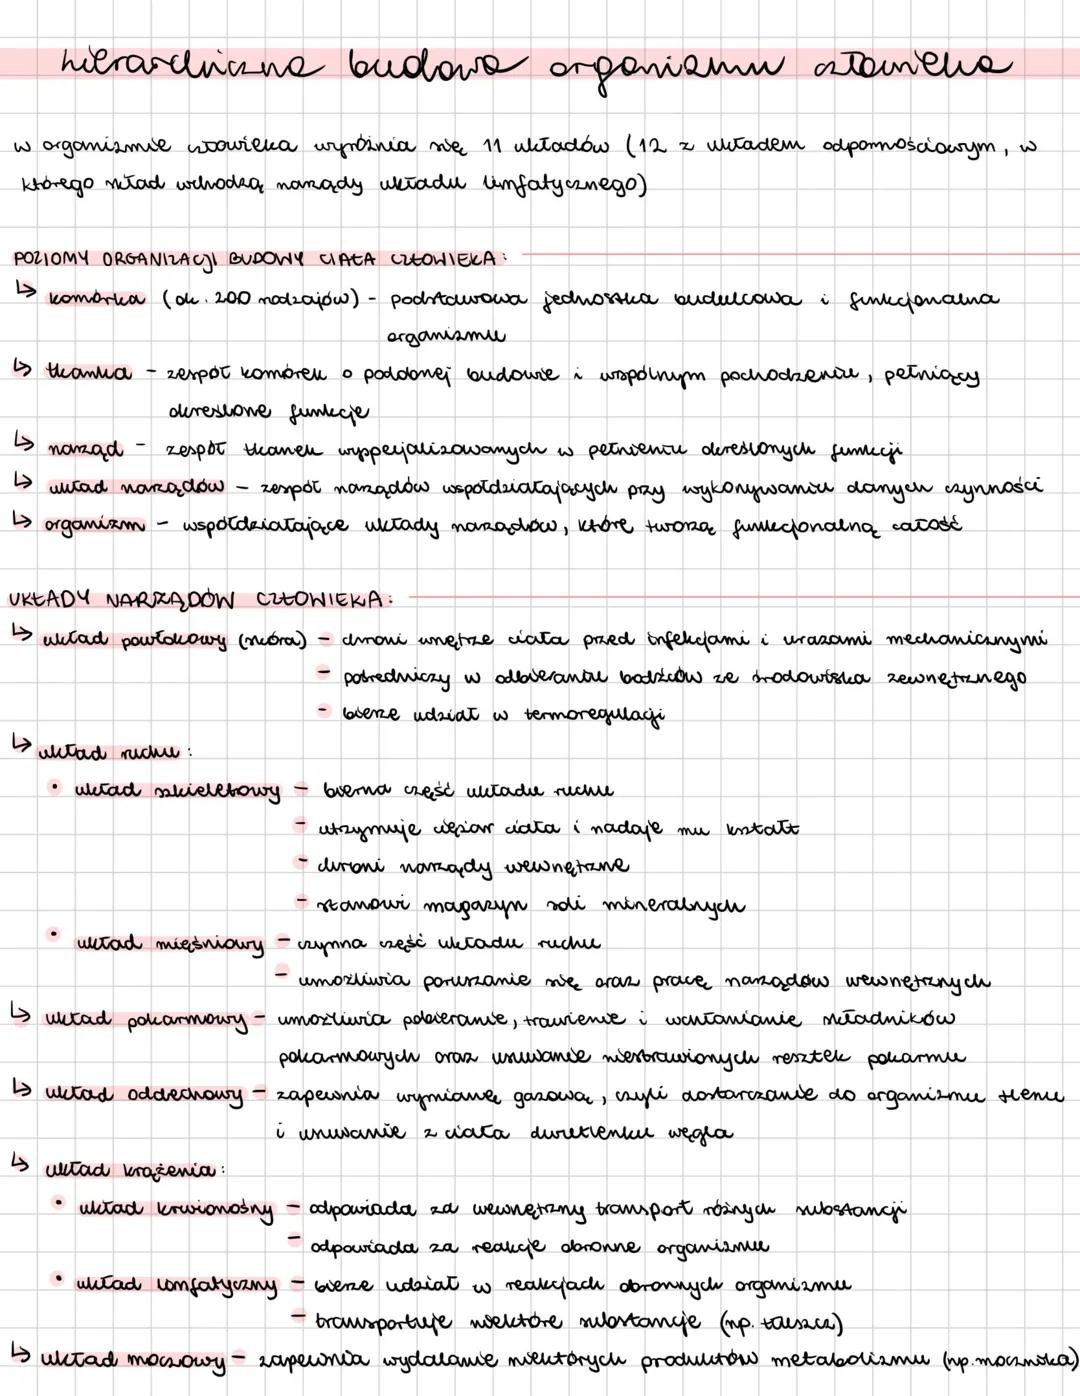 hierarchiczna budowa organizmu człowieka
w organizmie człowieka wyróżnia się 11 układów (12 z układem odpornościowym, w
którego skład wchodzą narządy układu limfatycznego)
POZIOMY ORGANIZACJI BUDOWY CIAŁA CZŁOWIEKA:
↳ komórka (ok. 200 rodzajów) - podstawowa jednostka budulcowa i funkcjonalna
organizmu
↳ tkanka - zespół komórek o podobnej budowie i wspólnym pochodzeniu, pełniący
określone funkcje
↳ narząd - zespół tkanek wyspecjalizowanych w pełnieniu określonych funkcji
↳ układ narządów - zespół narządów współdziałających przy wykonywaniu danych czynności
↳ organizm - współdziałające układy narządów, które tworzą funkcjonalną całość
UKŁADY NARZĄDÓW CZŁOWIEKA:
↳ układ powłokowy (skóra) - chroni wnętrze ciała przed infekcjami i urazami mechanicznymi
- pośredniczy w odbieraniu bodźców ze środowiska zewnętrznego
- bierze udział w termoregulacji
↳ układ ruchu:
• układ szkieletowy - bierna część układu ruchu
- utrzymuje ciężar ciała i nadaje mu kształt
- chroni narządy wewnętrzne
- stanowi magazyn soli mineralnych
• układ mięśniowy - czynna część układu ruchu
- umożliwia poruszanie się oraz pracę narządów wewnętrznych
↳ układ pokarmowy - umożliwia pobieranie, trawienie i wchłanianie składników
pokarmowych oraz usuwanie niestrawionych resztek pokarmu
↳ układ oddechowy - zapewnia wymianę gazową, czyli dostarczanie do organizmu tlenu
i usuwanie z ciała dwutlenku węgla
↳ układ krążenia:
• układ krwionośny - odpowiada za wewnętrzny transport różnych substancji
- odpowiada za reakcje obronne organizmu
• układ limfatyczny - bierze udział w reakcjach obronnych organizmu
- transportuje niektóre substancje (np. tłuszcze)
↳ układ moczowy - zapewnia wydalanie niektórych produktów metabolizmu (np. mocznika)